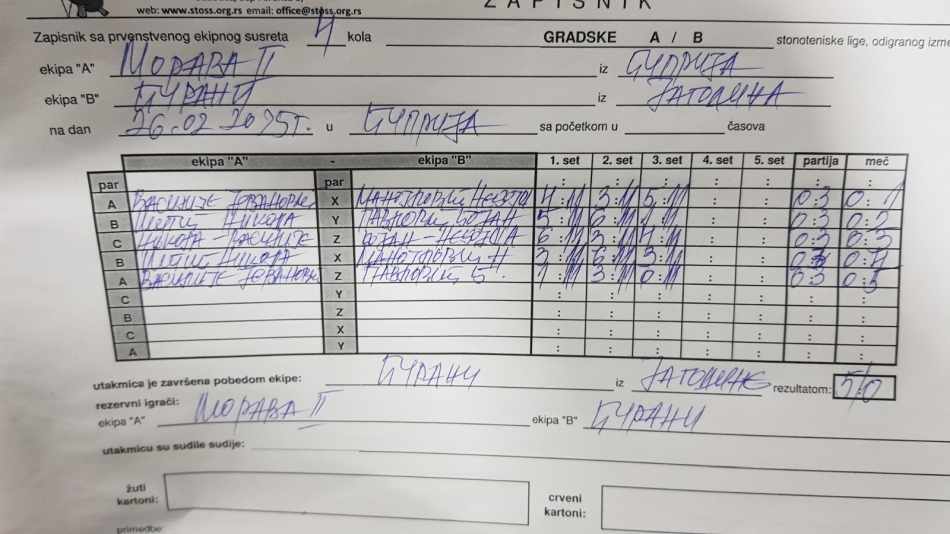 web: www.stoss.org.rs email: office@stoss.org.rs
ZAPISNIK
Zapisnik sa prvenstvenog ekipnog susreta 4 kola GRADSKE A / B stonoteniske lige, odigranog izme
ekipa "A" МОРАВА II iz ЋУПРИЈА
ekipa "B" ЂУРАНИ iz ЈАГОДИНА
na dan 26.02 2025г. u ЋУПРИЈА sa početkom u časova
ekipa "A" - ekipa "B" 1. set 2. set 3. set 4. set 5. set partija meč
par par : : : : : : :
A ВАСИЛИЈЕ ЈОВАНОВИЋ X 4:11 3:11 5:11 : : 0:3 0:1
B НИКОЛА Y ПАВЛОВИЋ БОЈАН 5:11 6:11 :11 : : 0:3 0:2
C НИКОЛА-ВАСИЛИЈЕ Z БОЈАН-НЕБОЈША 6:11 3:11 4:11 : : 0:3 0:3
B НИКОЛА X 3:11 6:11 3:11 : : 0:3 0:4
A ВАСИЛИЈЕ ЈОВАНОВИЋ Z ПАВЛОВИЋ Б. 1:11 3:11 0:11 : : 0:3 0:5
C Y : : : : : : :
B Z : : : : : : :
C X : : : : : : :
A Y : : : : : : :
utakmica je završena pobedom ekipe: ЂУРАНИ iz ЈАГОДИНЕ rezultatom: 5:0
rezervni igrači:
ekipa "A" МОРАВА II ekipa "B" ЂУРАНИ
utakmicu su sudile sudije:
žuti kartoni: crveni kartoni:
primedbe: